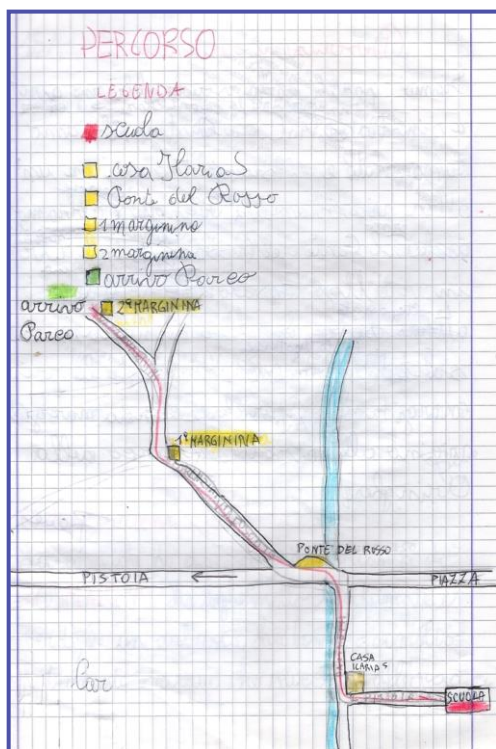 PERCORSO
LEGENDA
scuola
casa Ilaria S
Ponte del Rosso
1 marginino
2 marginina
arrivo Parco
arrivo
Parco
2ª MARGININA
1ª MARGININA
PONTE DEL ROSSO
PISTOIA
PIAZZA
CASA
ILARIA S
SCUOLA